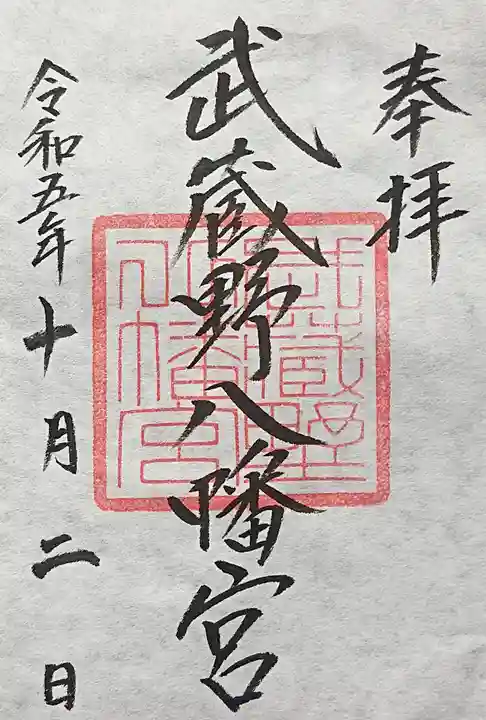 奉拝
武蔵野八幡宮
武蔵野
八幡宮
令和五年十月二日